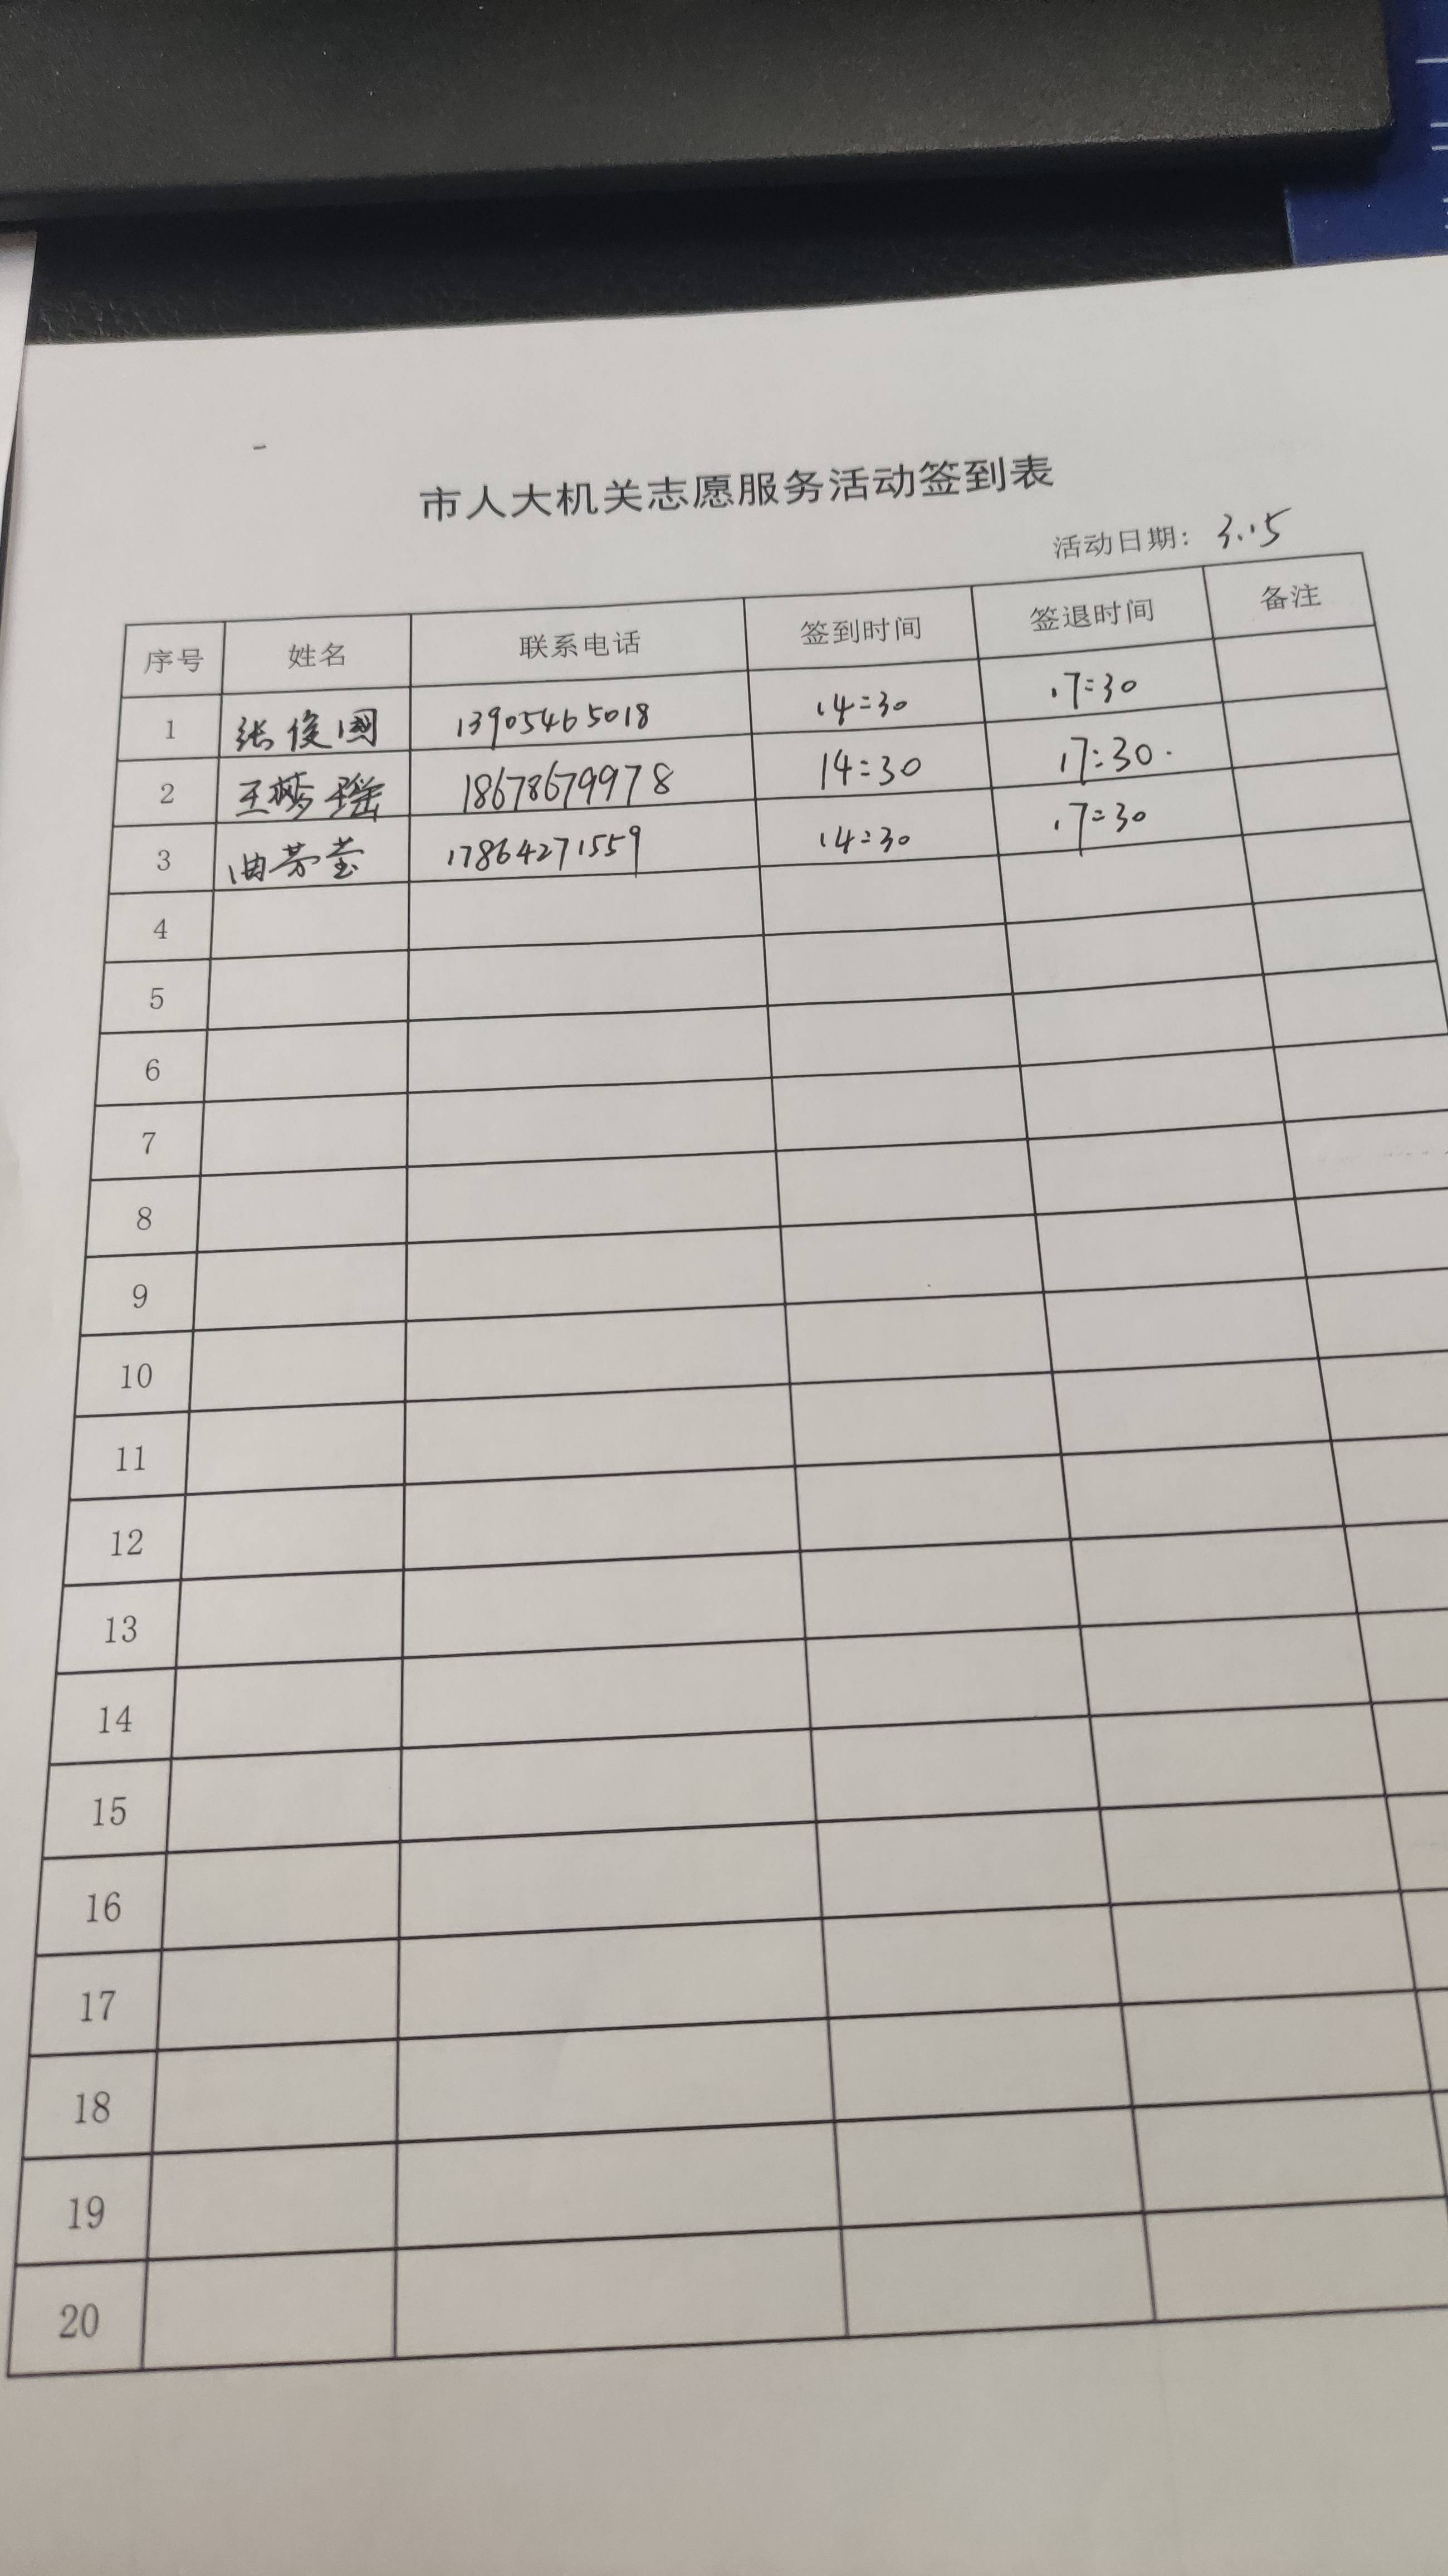 市人大机关志愿服务活动签到表
活动日期: 3.15
序号 姓名 联系电话 签到时间 签退时间 备注
1 张俊国 13905465018 14:30 17:30
2 王梦瑶 18678679978 14:30 17:30.
3 曲芳莹 17864271559 14:30 17:30
4
5
6
7
8
9
10
11
12
13
14
15
16
17
18
19
20